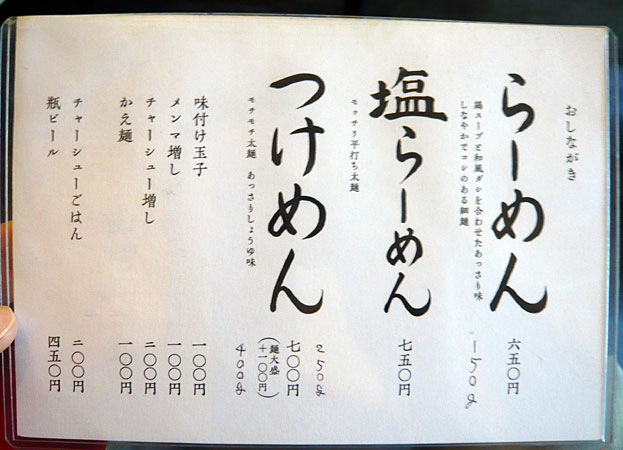 おしながき
らーめん 六五〇円
鶏スープと和風ダシを合わせたあっさり味
しなやかでコシのある細麺
150g
塩らーめん 七五〇円
モッチリ平打ち太麺
つけめん 七〇〇円
250g
(麺大盛
+一〇〇円)
400g
モチモチ太麺 あっさりしょうゆ味
味付け玉子 一〇〇円
メンマ増し 一〇〇円
チャーシュー増し 二〇〇円
かえ麺 一〇〇円
チャーシューごはん 二〇〇円
瓶ビール 四五〇円